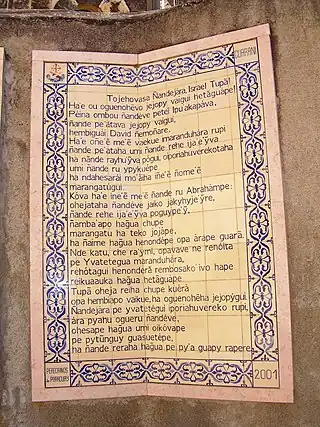 GUARANI
Tojehovasa Ñandejára, Israel Tupã!
Ha'e ou oguenohẽvo jejopy vaígui hetãguápe!
Péina ombou ñandéve peteĩ Ipu'akapáva,
ñande pe'ãtava jejopy vaígui,
hembiguái David ñemoñare.
Ha'e oñe'ẽ me'ẽ vaekue maranduhára rupi
ñande pe'ãtaha umi ñande rehe ija'e'ỹva
ha ñande rayhu'ỹva pógui, oporiahuverekotaha
umi ñande ru ypykuépe
ha ndahesarái mo'ãiha iñe'ẽ ñome'ẽ
marangatúgui.
Kóva ha'e iñe'ẽ me'ẽ ñande ru Abrahámpe:
ohejataha ñandéve jako jákyhyje'ỹre,
ñande rehe ija'e'ỹva poguype'ỹ,
ñamba'apo haḡua chupe
marangatu ha teko jojápe,
ha ñaime haḡua henondépe opa árape guarã.
Nde katu, che ra'ymi, opavave ne renóita
pe Yvatetegua maranduhára,
rehótagui henonderã rembosako'ivo hape
reikuaauka haḡua hetãguápe
Tupã oheja reiha chupe kuéra
opa hembiapo vaikue, ha oguenohẽha jejopýgui.
Ñandejára pe yvatetégui iporiahuvereko rupi,
ára pyahu ogueru ñandéve,
ohesape haḡua umi oikóvape
pe pytũnguy guasuetépe,
ha ñande reraha haḡua pe py'a guapy rapére.
PEREGRINOS
de PARAGUAY
2001